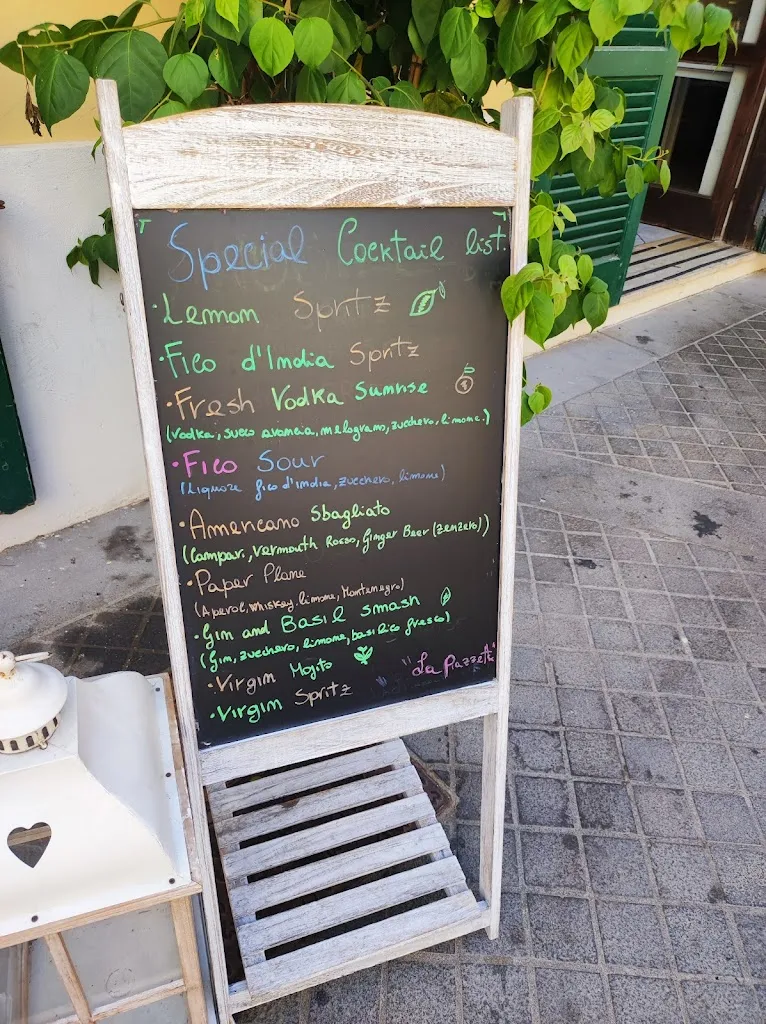 Special Cocktail list
• Lemon Spritz
• Fico d'India Spritz
• Fresh Vodka Sunrise
(Vodka, succo arancia, melograno, zucchero, limone.)
• Fico Sour
(Liquore fico d'india, zucchero, limone)
• Americano Sbagliato
(Campari, Vermouth Rosso, Ginger Beer (zenzero))
• Paper Plane
(Aperol, whiskey, limone, Montenegro)
• Gin and Basil smash
(Gin, zucchero, limone, basilico fresco)
• Virgin Mojito
• Virgin Spritz
"La Piazzetta"